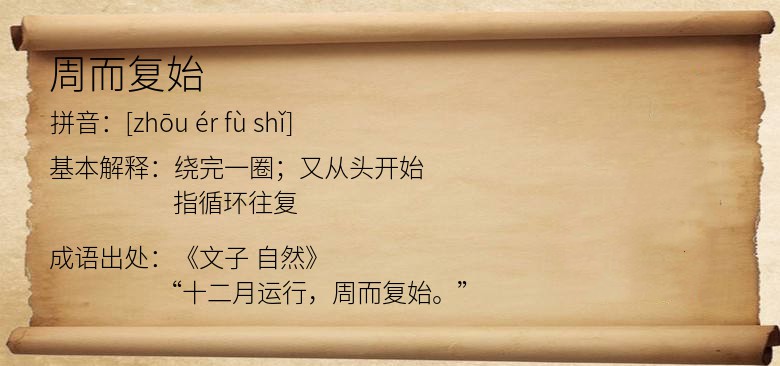 周而复始
拼音：[zhōu ér fù shǐ]
基本解释：绕完一圈；又从头开始
指循环往复
成语出处：《文子 自然》
“十二月运行，周而复始。”